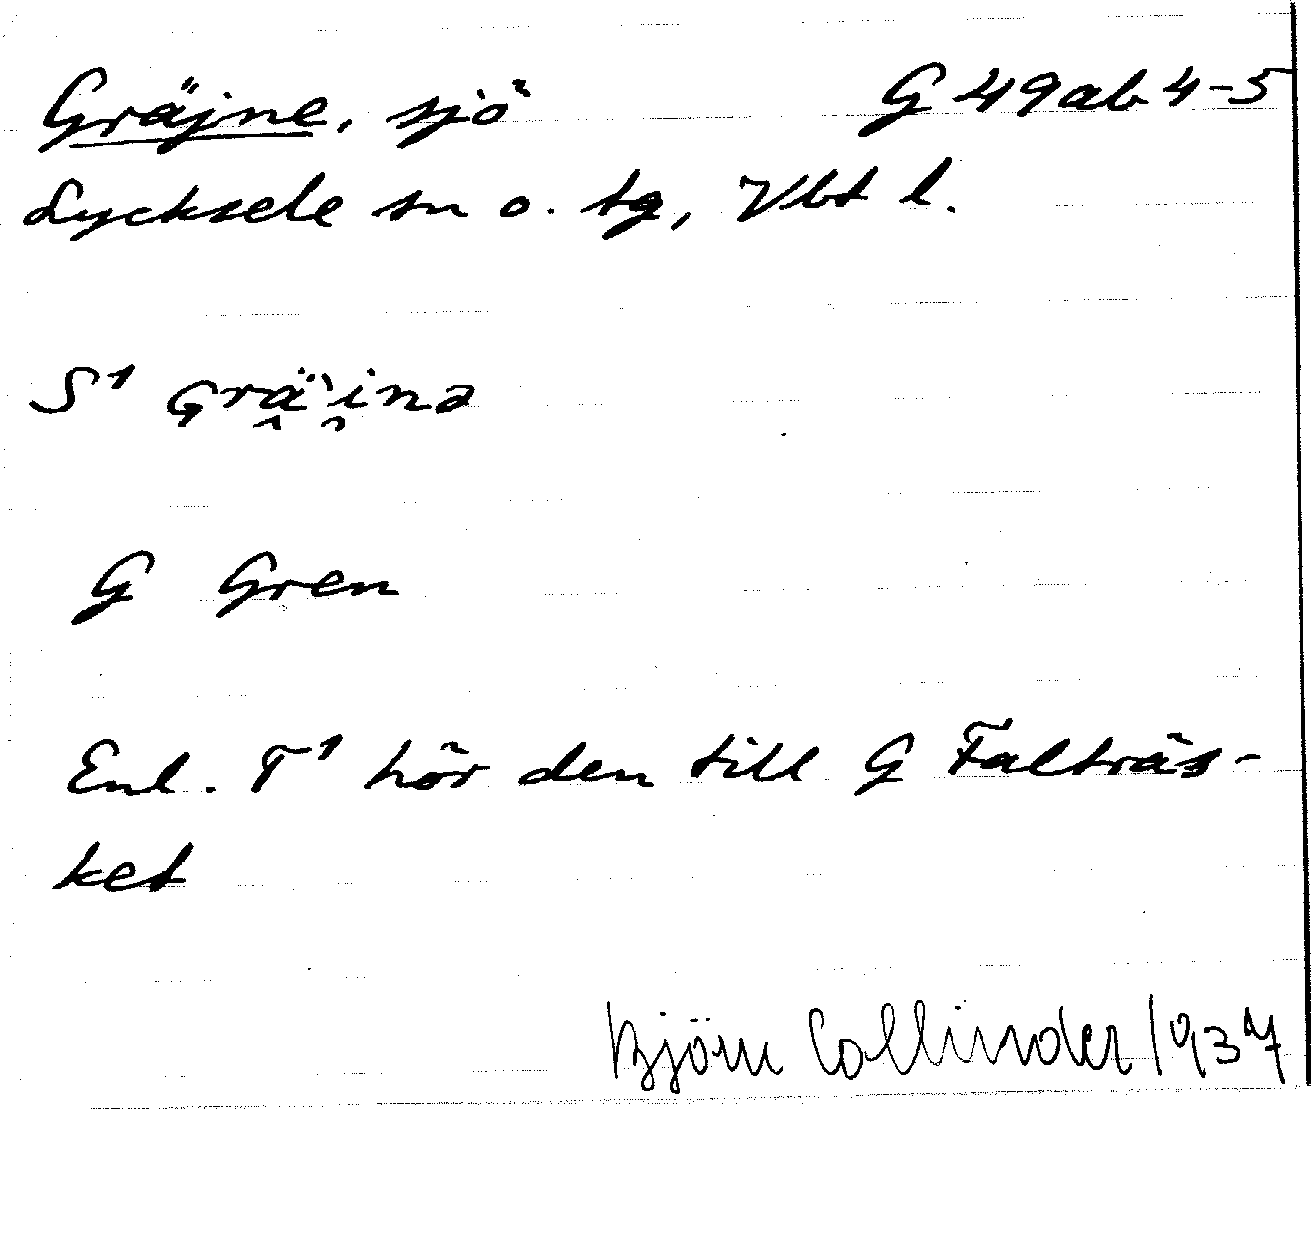 Gräjne, sjö G 49ab 4-5
Lycksele sn o. tg, Vbt l.
S¹ Grä̭`i̯nə
G Gren
Enl. T¹ hör den till G Falträs-
ket
Björn Collinder 1937